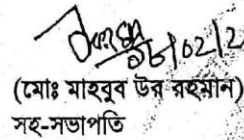 (মোঃ মাহবুব উর রহমান)
সহ-সভাপতি